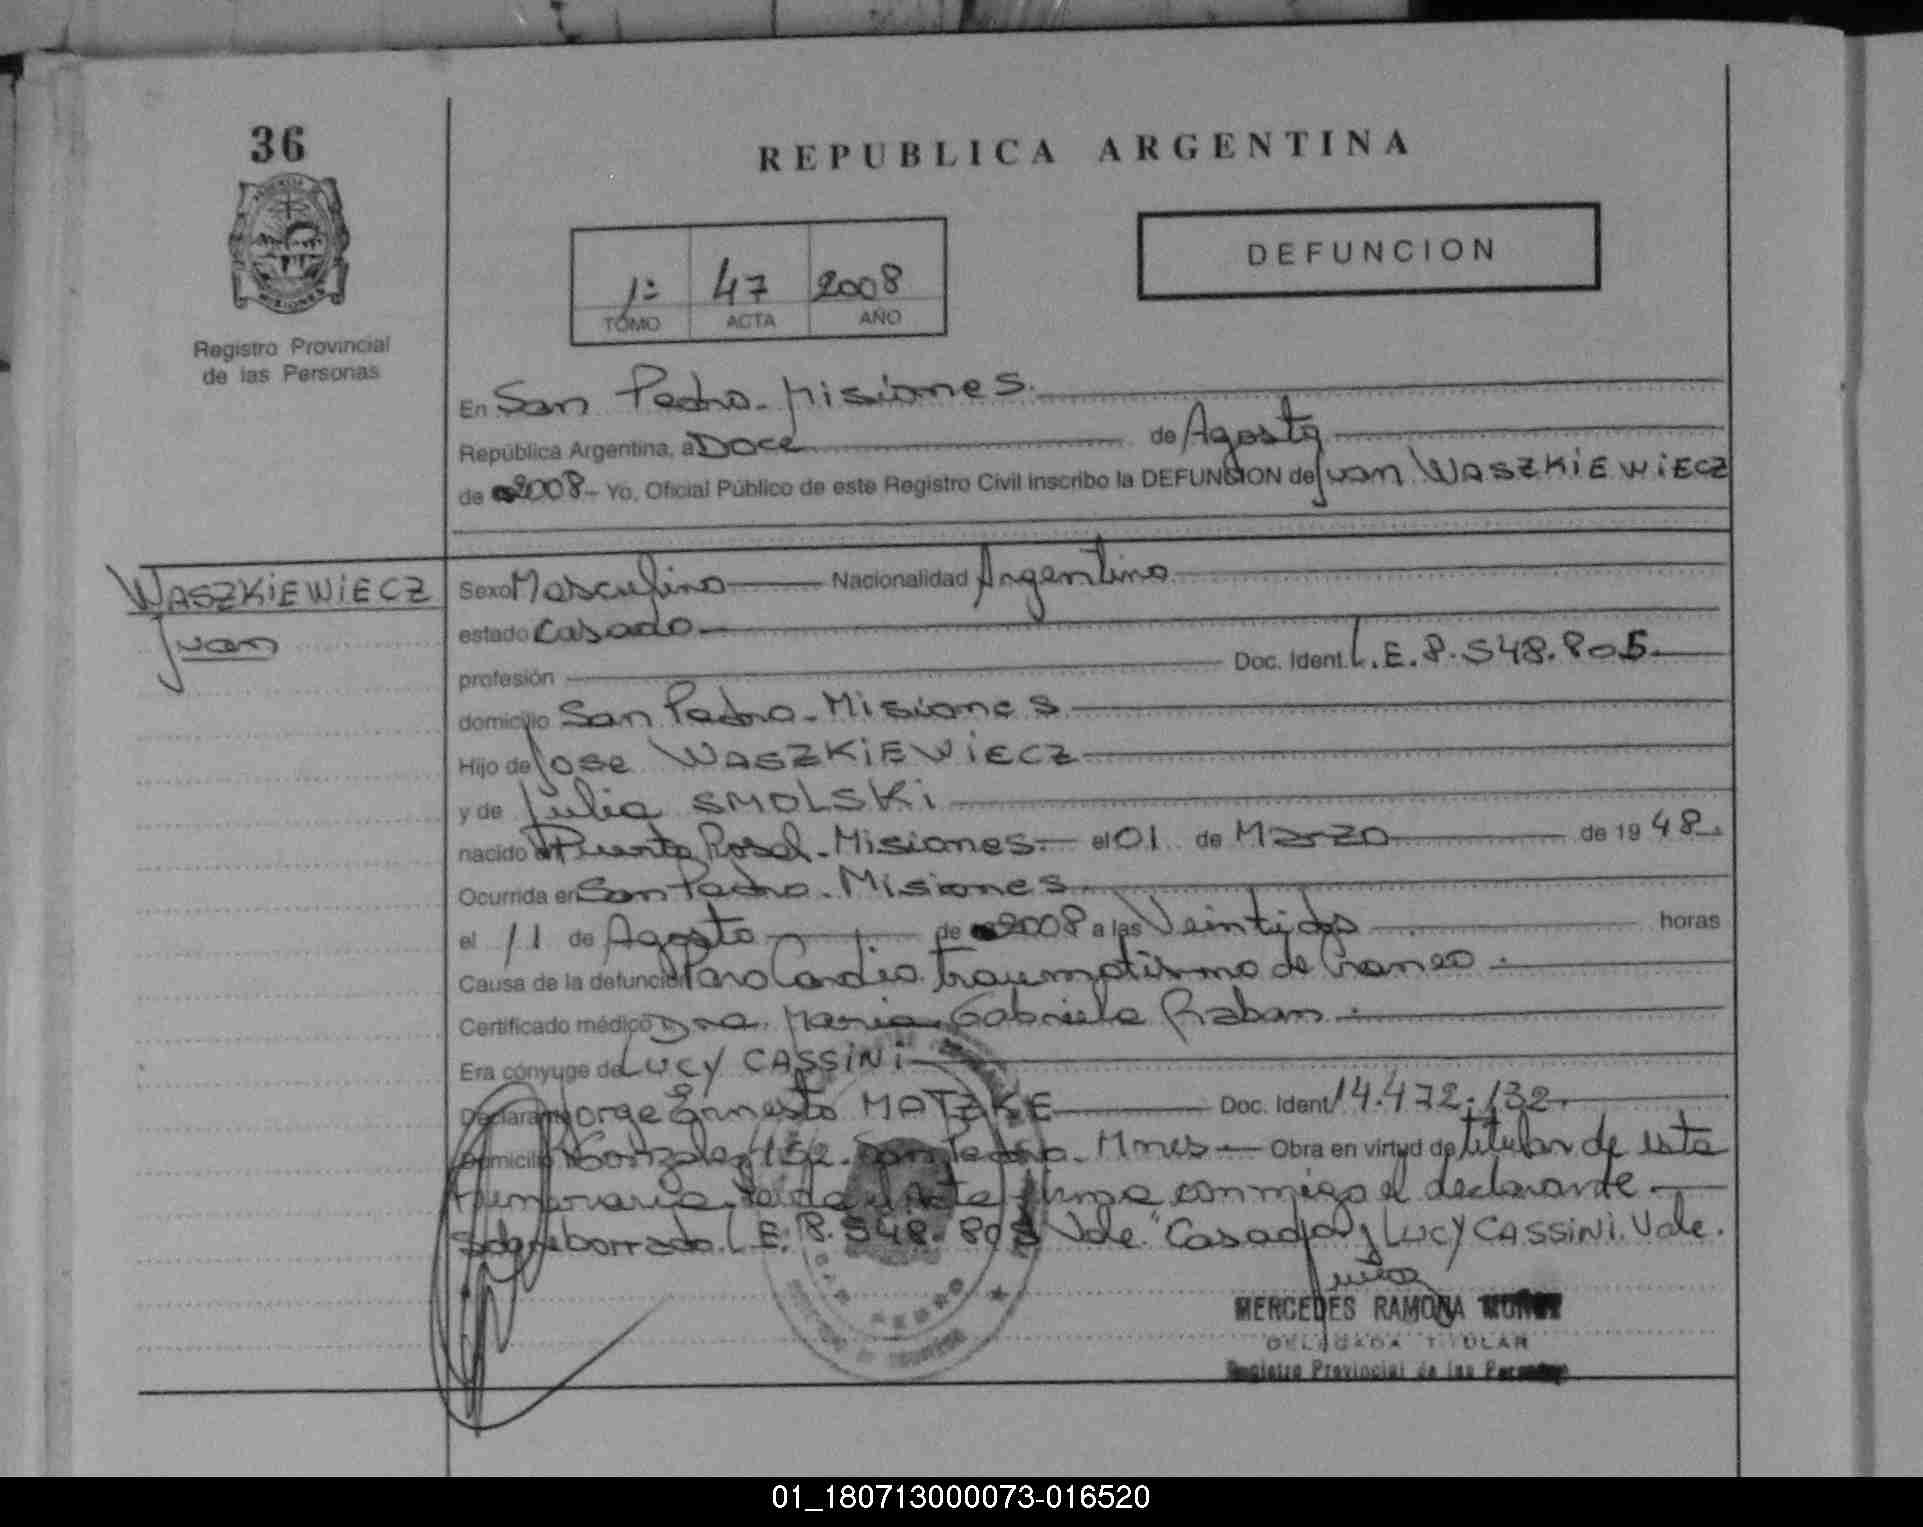 36
REPUBLICA ARGENTINA
DEFUNCION
1º 47 2008
TOMO ACTA AÑO
Registro Provincial
de las Personas
En San Pedro - Misiones.
República Argentina, a Doce de Agosto
de 2008 - Yo, Oficial Público de este Registro Civil inscribo la DEFUNCION de Juan WASZKIEWIECZ
WASZKIEWIECZ
Juan
Sexo Masculino Nacionalidad Argentino
estado Casado
profesión Doc. Ident. L.E. 8.548.805
domicilio San Pedro - Misiones
Hijo de Jose WASZKIEWIECZ
y de Julia SMOLSKI
nacido en Puerto Rosal - Misiones - el 01 de Marzo de 19 48.
Ocurrida en San Pedro - Misiones
el 11 de Agosto de 2008 a las Veintidos horas
Causa de la defunción Paro Cardio. traumatismo de Craneo.
Certificado médico Dra. Maria Gabriela Raban.
Era cónyuge de LUCY CASSINI
Declarante Jorge Ernesto MATZKE Doc. Ident. 14.472.132.
Domicilio Gonzalez San Pedro - Mnes - Obra en virtud de titular de esta
funeraria. Leida el Acta firma conmigo el declarante.
Sobreborrado. L.E. 8.548.805 Vale. "Casado y LUCY CASSINI. Vale.
SAN PEDRO
MERCEDES RAMONA MUÑOZ
DELEGADA TITULAR
Registro Provincial de las Personas
01_180713000073-016520